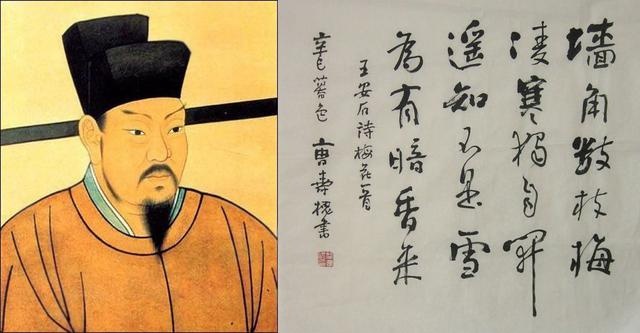 墙角数枝梅
凌寒独自開
遥知不是雪
為有暗香来
王安石诗梅花一首
辛巳